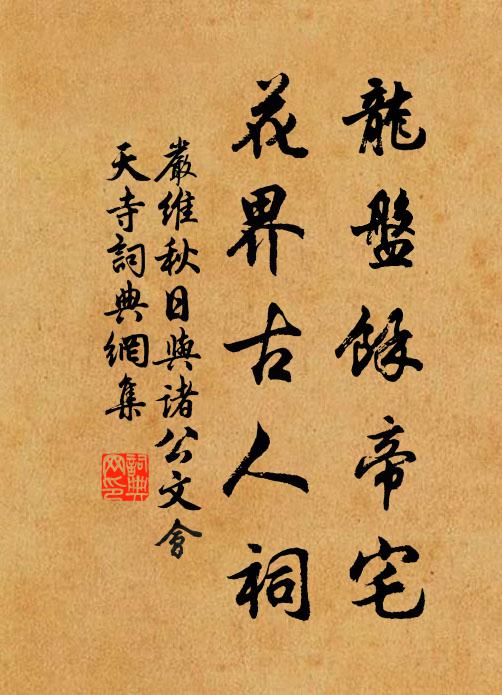 龍盤餘帝宅
花界古人祠
嚴維秋日與諸公文會
天寺詞典網集
詞典網印